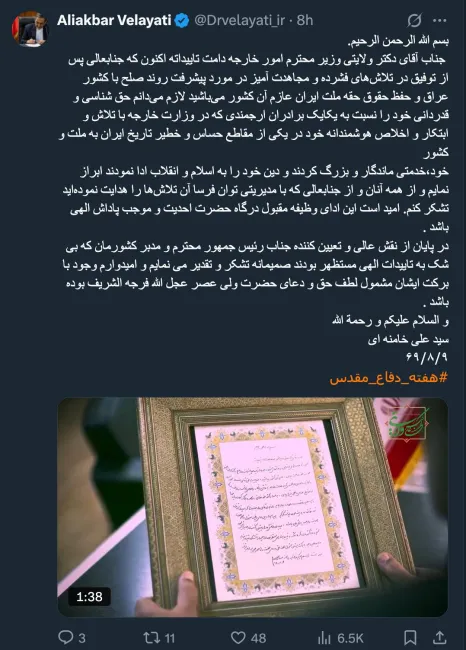 Aliakbar Velayati @Drvelayati_ir · 8h
بسم الله الرحمن الرحیم.
جناب آقای دکتر ولایتی وزیر محترم امور خارجه دامت تاییداته اکنون که جنابعالی پس
از توفیق در تلاش‌های فشرده و مجاهدت آمیز در مورد پیشرفت روند صلح با کشور
عراق و حفظ حقوق حقه ملت ایران عازم آن کشور می‌باشید لازم می‌دانم حق شناسی و
قدردانی خود را نسبت به یکایک برادران ارجمندی که در وزارت خارجه با تلاش و
ابتکار و اخلاص هوشمندانه خود در یکی از مقاطع حساس و خطیر تاریخ ایران به ملت و
کشور
خود،خدمتی ماندگار و بزرگ کردند و دین خود را به اسلام و انقلاب ادا نمودند ابراز
نمایم و از همه آنان و از جنابعالی که با مدیریتی توان فرسا آن تلاش‌ها را هدایت نموده‌اید
تشکر کنم. امید است این ادای وظیفه مقبول درگاه حضرت احدیت و موجب پاداش الهی
باشد .
در پایان از نقش عالی و تعیین کننده جناب رئیس جمهور محترم و مدبر کشورمان که بی
شک به تاییدات الهی مستظهر بودند صمیمانه تشکر و تقدیر می نمایم و امیدوارم وجود با
برکت ایشان مشمول لطف حق و دعای حضرت ولی عصر عجل الله فرجه الشریف بوده
باشد .
و السلام علیکم و رحمة الله
سید علی خامنه ای
۶۹/۸/۹
#هفته_دفاع_مقدس
1:38
3 11 48 6.5K